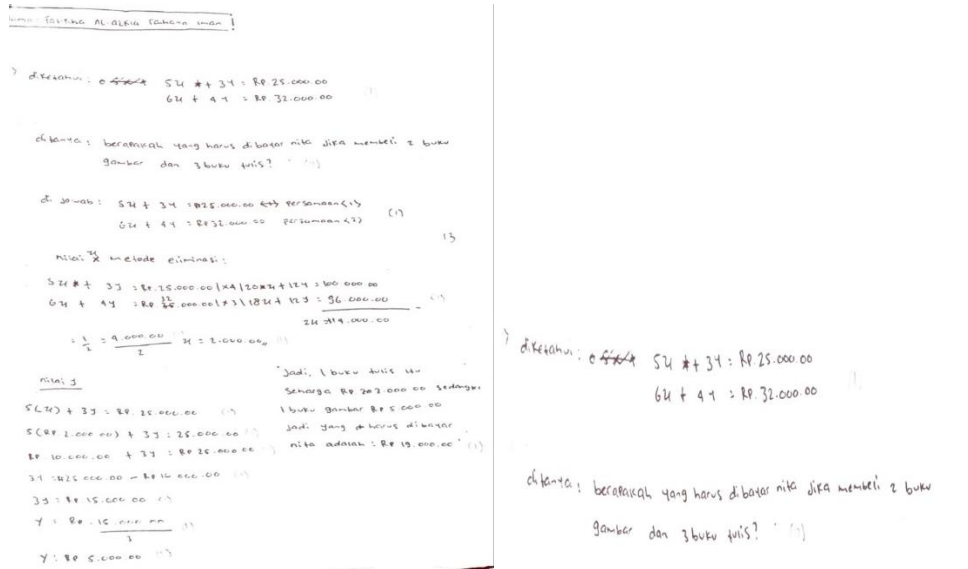 diketahui: 5x + 3y = Rp. 25.000.00
6x + 4y = Rp. 32.000.00
ditanya: berapakah yang harus dibayar nita jika membeli 2 buku
gambar dan 3 buku tulis? (1)
di jawab: 5x + 3y = Rp25.000.00 persamaan (1)
6x + 4y = Rp 32.000.00 persamaan (2)
(1)
13
nilai x metode eliminasi:
5x + 3y = Rp. 25.000.00 |x4| 20x + 12y = 100.000.00
6x + 4y = Rp 32.000.00 |x3| 18x + 12y = 96.000.00 -
2x = 4.000.00
= 4.000.00
2
x = 2.000.00
nilai y
5(x) + 3y = Rp. 25.000.00
5(Rp. 2.000.00) + 3y = 25.000.00
Rp. 10.000.00 + 3y = Rp 25.000.00
3y = Rp25.000.00 - Rp 10.000.00
3y = Rp 15.000.00
y = Rp. 15.000.00
3
y = Rp 5.000.00
"Jadi, 1 buku tulis itu
seharga Rp 2.000.00 sedangkan
1 buku gambar Rp 5.000.00
jadi yang harus dibayar
nita adalah = Rp 19.000.00" (1)
diketahui: 5x + 3y = Rp. 25.000.00
6x + 4y = Rp. 32.000.00
ditanya: berapakah yang harus dibayar nita jika membeli 2 buku
gambar dan 3 buku tulis? (1)